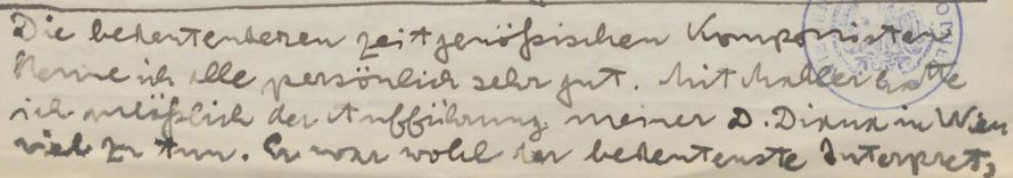 Die bedeutenderen zeitgenößischen Komponisten
kenne ich alle persönlich sehr gut. Mit Mahler hatte
ich anläßlich der Aufführung meiner D. Diana in Wien
viel zu tun. Er war wohl der bedeutenste Interpret,